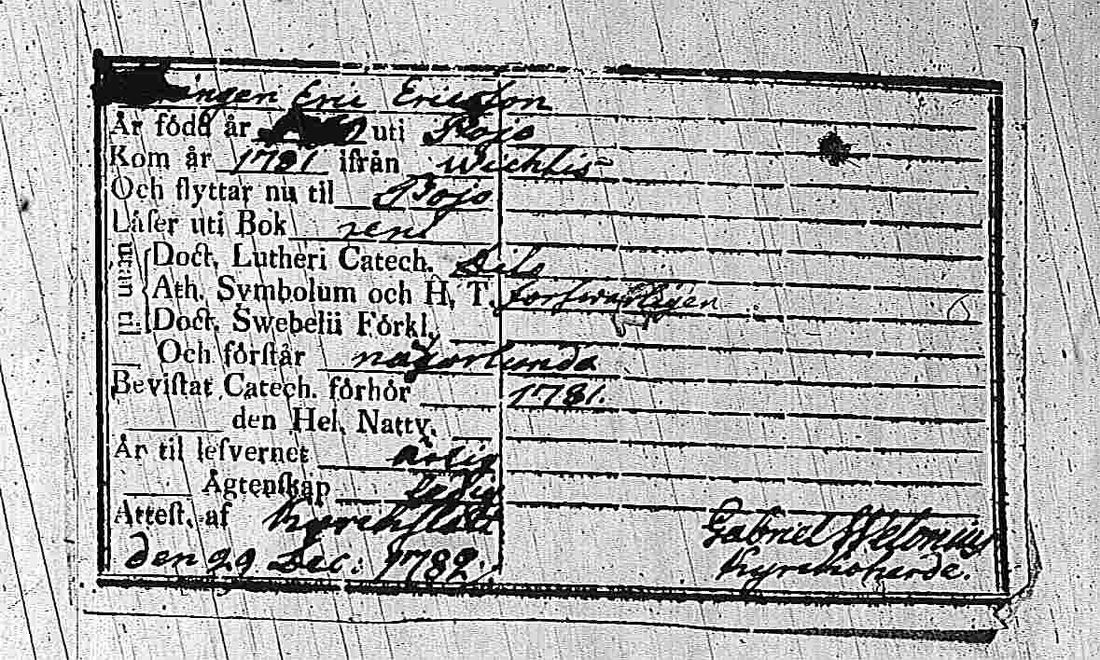 Eric Ericsson
År född år uti Pojo
Kom år 1781 ifrån Wichtis
Och flyttar nu til Pojo
Låser uti Bok rent
Doct. Lutheri Catech. Dito
Ath. Symbolum och H. T. forswarligen
Doct. Swebelii Förkl.
Och förstår någorlunda
Bevistat Catech. förhör 1781.
den Hel. Nattv.
År til lefvernet ärlig
Ägtenskap ledig
Attest. af Kyrckslätt
den 29 Dec: 1782.
Gabriel
Kyrckoherde.